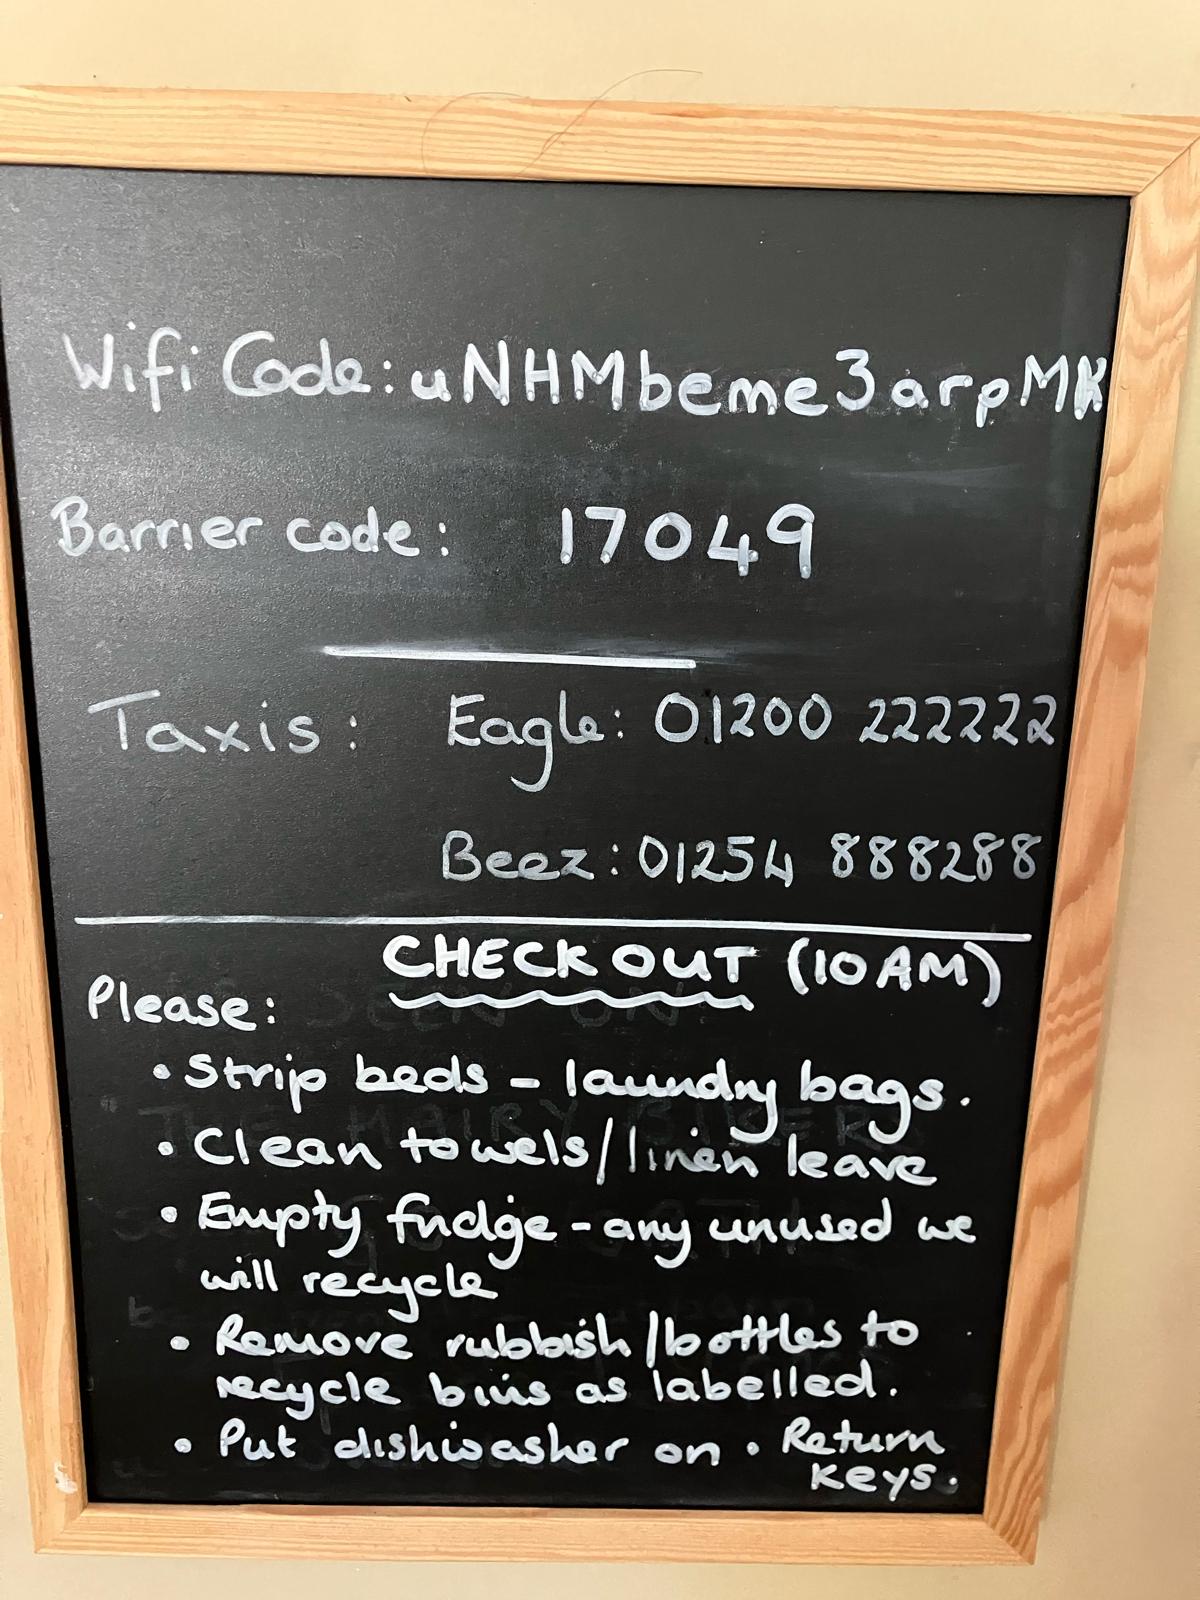 Wifi Code: uNHMbeme3arpMK
Barrier code: 17049
Taxis: Eagle: 01200 222222
Beez: 01254 888288
CHECK OUT (10AM)
Please:
• Strip beds - laundry bags.
• Clean towels/linen leave
• Empty fridge - any unused we
will recycle
• Remove rubbish/bottles to
recycle bins as labelled.
• Put dishwasher on • Return
keys.